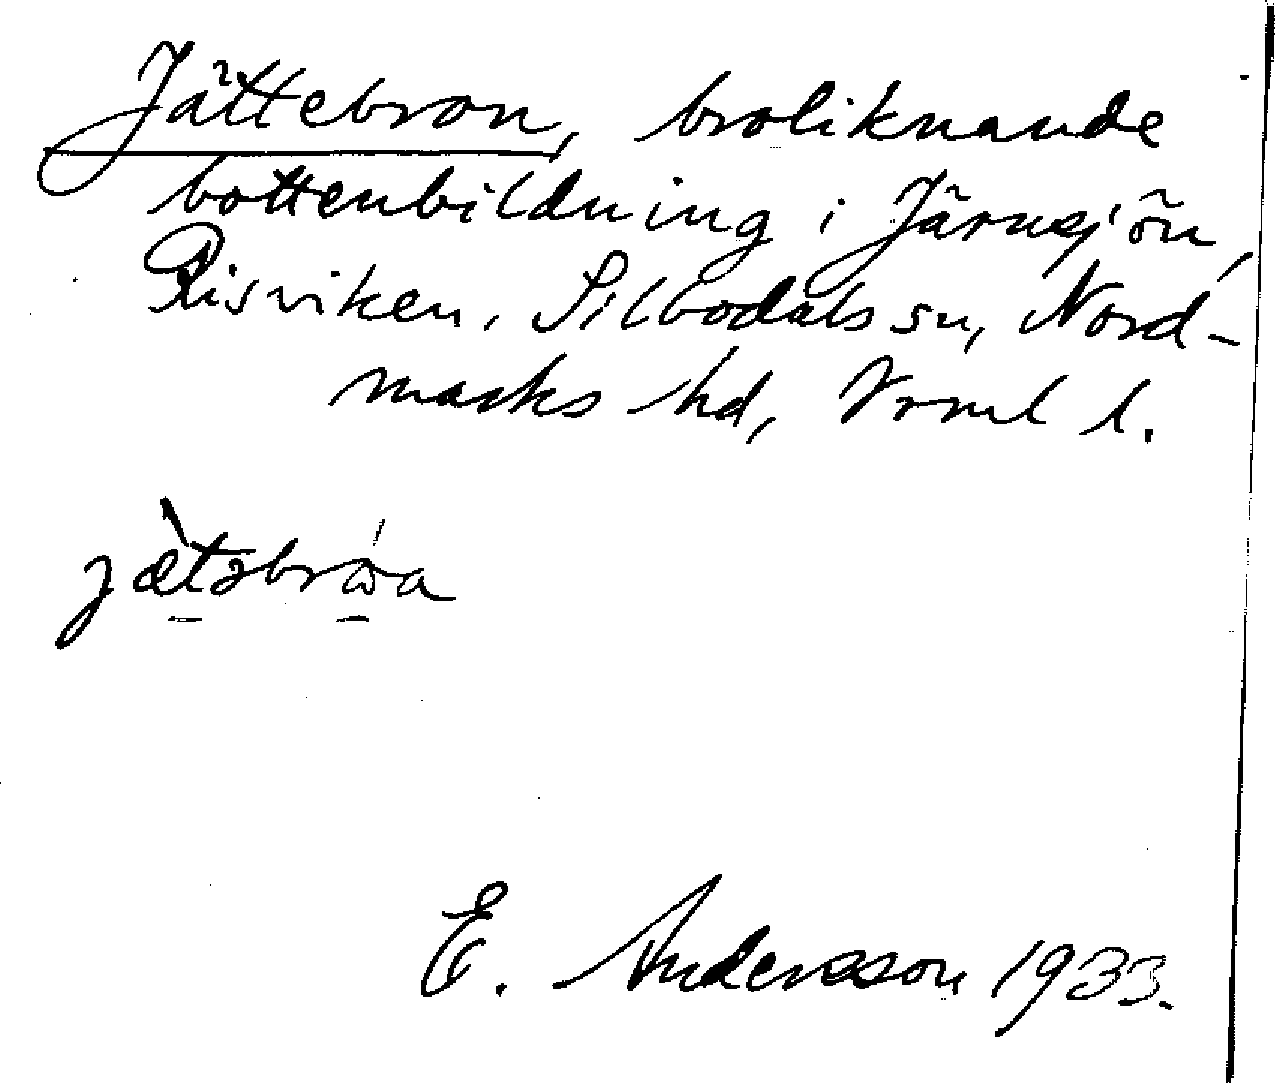 Jättebron, broliknande
bottenbildning i Järnsjön,
Risviken, Silbodals sn, Nord-
marks hd, Vrml l.
E. Andersson 1933.